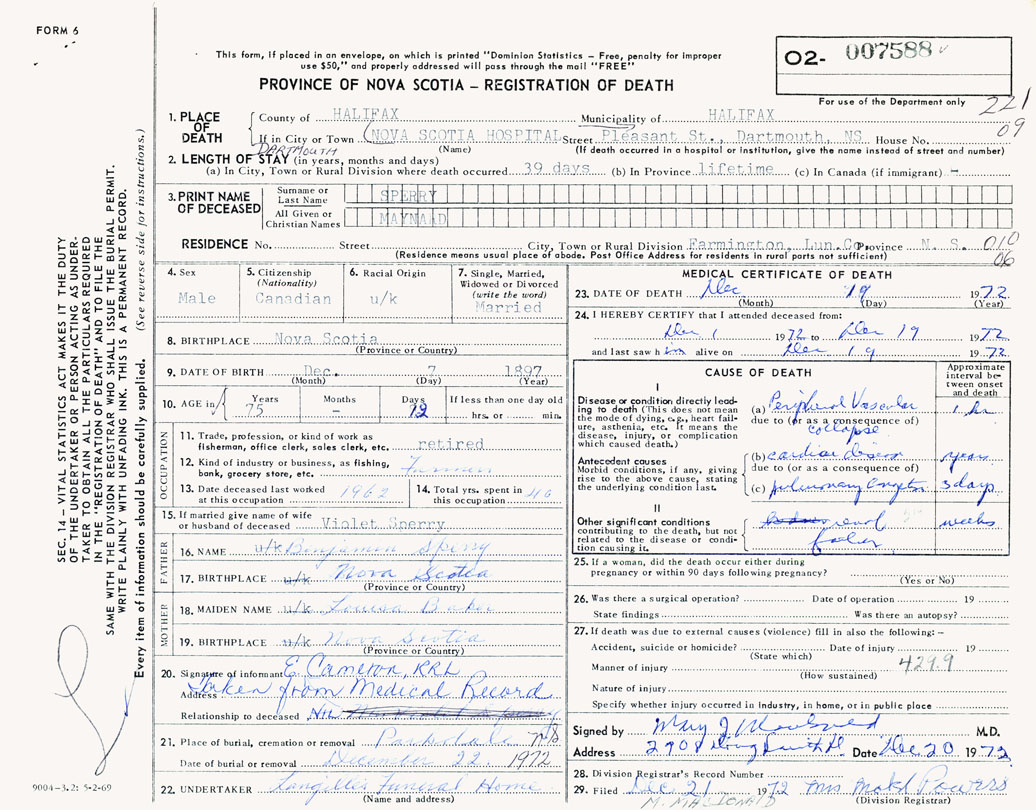 FORM 6
This form, if placed in an envelope, on which is printed "Dominion Statistics – Free, penalty for improper
use $50," and properly addressed will pass through the mail "FREE"
PROVINCE OF NOVA SCOTIA – REGISTRATION OF DEATH
O2- 007588
For use of the Department only
221
09
1. PLACE OF DEATH
County of HALIFAX Municipality of HALIFAX
If in City or Town NOVA SCOTIA HOSPITAL Street Pleasant St., Dartmouth, NS House No.
DARTMOUTH (Name) (If death occurred in a hospital or institution, give the name instead of street and number)
2. LENGTH OF STAY (in years, months and days)
(a) In City, Town or Rural Division where death occurred 39 days (b) In Province lifetime (c) In Canada (if immigrant) –
3. PRINT NAME OF DECEASED
Surname or Last Name SPERRY
All Given or Christian Names MAYNAAD
RESIDENCE No. Street City, Town or Rural Division Farmington, Lun.Co. Province N. S. 010
(Residence means usual place of abode. Post Office Address for residents in rural parts not sufficient) 06
4. Sex
Male
5. Citizenship
(Nationality)
Canadian
6. Racial Origin
u/k
7. Single, Married,
Widowed or Divorced
(write the word)
Married
8. BIRTHPLACE Nova Scotia
(Province or Country)
9. DATE OF BIRTH Dec. 7 1897
(Month) (Day) (Year)
10. AGE in Years Months Days If less than one day old
75 – 12 hrs. or min.
OCCUPATION
11. Trade, profession, or kind of work as
fisherman, office clerk, sales clerk, etc. retired
12. Kind of industry or business, as fishing,
bank, grocery store, etc. Farmer
13. Date deceased last worked
at this occupation 1962
14. Total yrs. spent in
this occupation 46
15. If married give name of wife
or husband of deceased Violet Sperry
FATHER
16. NAME u/k Benjamin Sperry
17. BIRTHPLACE u/k Nova Scotia
(Province or Country)
MOTHER
18. MAIDEN NAME u/k Louisa Baker
19. BIRTHPLACE u/k Nova Scotia
(Province or Country)
20. Signature of informant E Cameron, RRL
Address Taken from Medical Record
Relationship to deceased Nil
21. Place of burial, cremation or removal Parkdale
Date of burial or removal December 22 1972
22. UNDERTAKER Langilles Funeral Home
(Name and address)
MEDICAL CERTIFICATE OF DEATH
23. DATE OF DEATH Dec 19 1972
(Month) (Day) (Year)
24. I HEREBY CERTIFY that I attended deceased from:
Dec 1 1972 to Dec 19 1972
and last saw him alive on Dec 19 1972
CAUSE OF DEATH
Approximate
interval be-
tween onset
and death
I
Disease or condition directly lead-
ing to death (This does not mean
the mode of dying, e.g., heart fail-
ure, asthenia, etc. It means the
disease, injury, or complication
which caused death.)
(a) Peripheral Vascular 1 hr
due to (or as a consequence of)
collapse
Antecedent causes
Morbid conditions, if any, giving
rise to the above cause, stating
the underlying condition last.
(b) cardiac disease years
due to (or as a consequence of)
(c) pulmonary 3 days
II
Other significant conditions
contributing to the death, but not
related to the disease or condi-
tion causing it.
renal weeks
25. If a woman, did the death occur either during
pregnancy or within 90 days following pregnancy?
(Yes or No)
26. Was there a surgical operation? Date of operation 19
State findings Was there an autopsy?
27. If death was due to external causes (violence) fill in also the following: –
Accident, suicide or homicide? Date of injury 19
(State which)
429.9
Manner of injury
(How sustained)
Nature of injury
Specify whether injury occurred in industry, in home, or in public place
Signed by Mary J M.D.
Address Date Dec 20 1972
28. Division Registrar's Record Number
29. Filed Dec 21 1972 Mrs Powers
M. MACDONALD (Division Registrar)
SEC. 14 – VITAL STATISTICS ACT MAKES IT THE DUTY
OF THE UNDERTAKER OR PERSON ACTING AS UNDER-
TAKER TO OBTAIN ALL THE PARTICULARS REQUIRED
IN THE "REGISTRATION OF DEATH" AND TO FILE THE
SAME WITH THE DIVISION REGISTRAR WHO SHALL ISSUE THE BURIAL PERMIT.
WRITE PLAINLY WITH UNFADING INK. THIS IS A PERMANENT RECORD.
Every item of information should be carefully supplied. (See reverse side for instructions.)
9004–3.2: 5-2-69